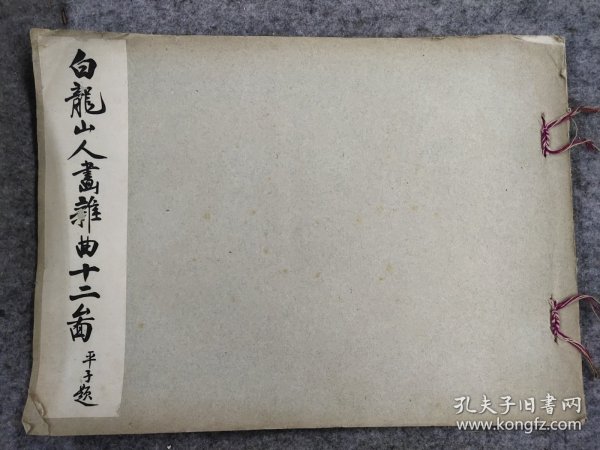 白龍山人畫雜曲十二圖
平子題
孔夫子旧書网
www.kongfz.com